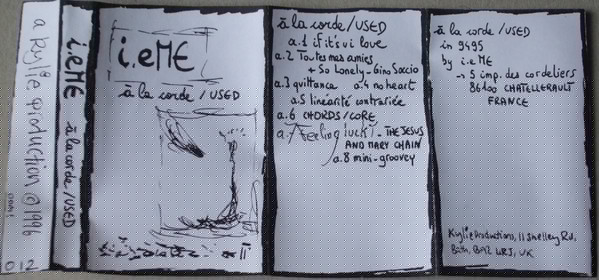 a Kylie production @ 1996
oooh!
012
i.eME à la corde/USED
i.eME
à la corde / USED
à la corde/USED
a.1 if it's ui love
a.2 Toutes mes amies
+ So Lonely - Gino Soccio
a.3 quittance a.4 no heart
a.5 linéarité contrariée
a.6 CHORDS/CORE
a.7 Feeling luck! - THE JESUS
AND MARY CHAIN
a.8 mini-groovey
à la corde / USED
in 9495
by i.e ME
→ 5 imp. des cordeliers
86100 CHATELLERAULT
FRANCE
Kylie Productions, 11 Shelley Rd,
Bath, BA2 4RJ, UK